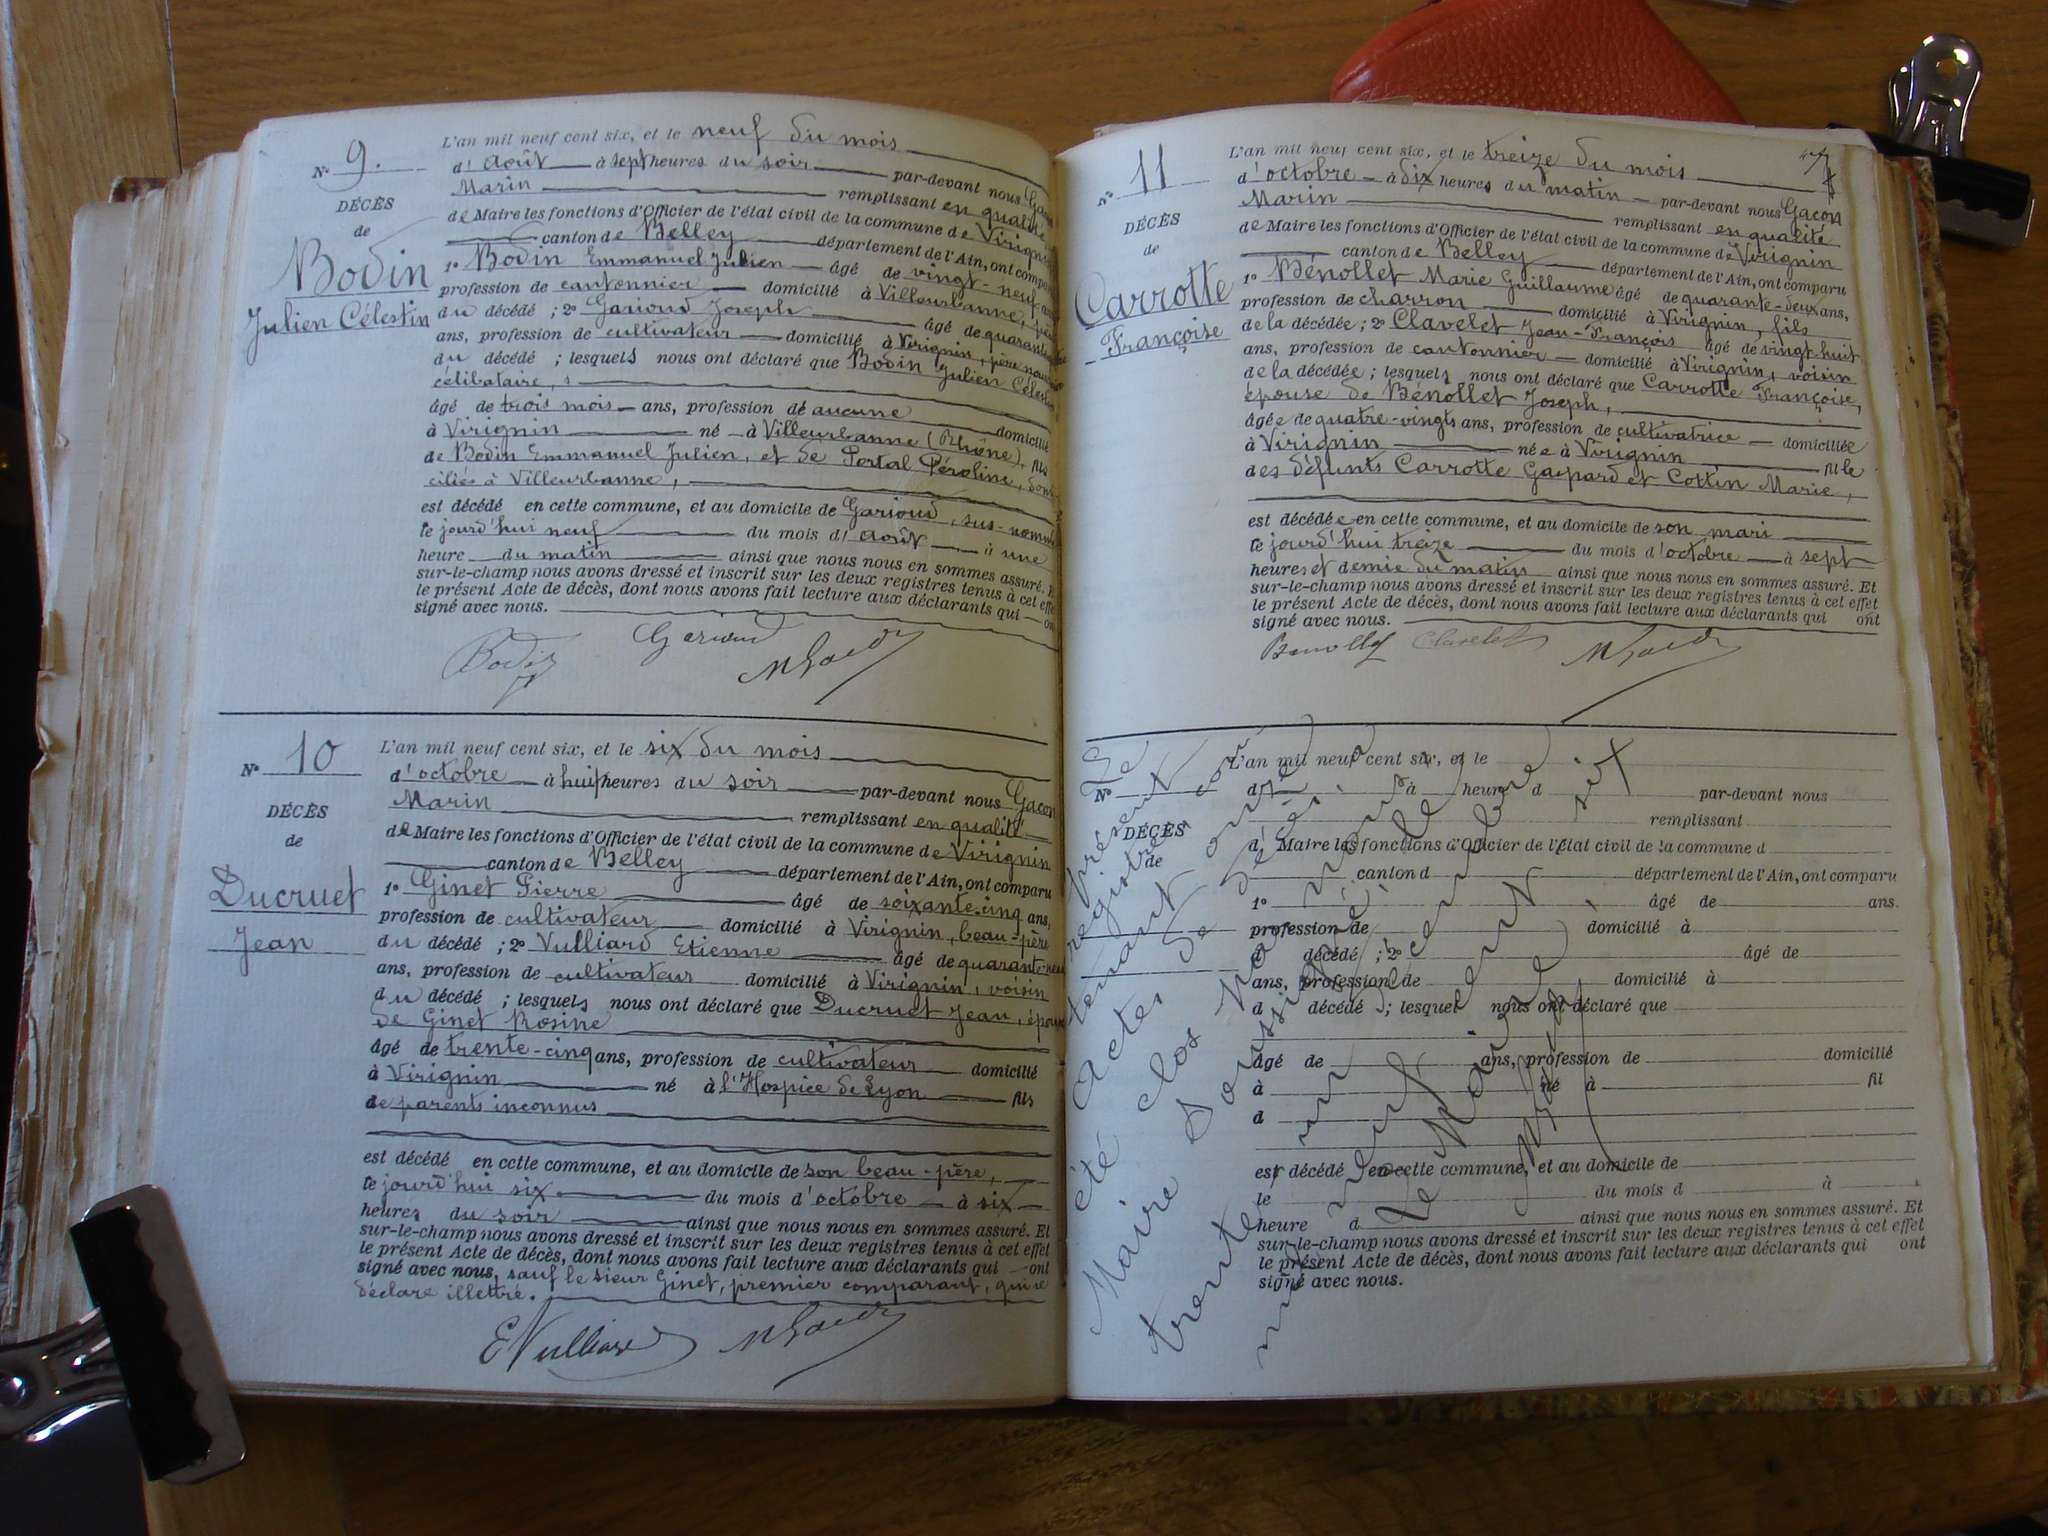 N° 9.
DÉCÈS
de
Bodin
Julien Célestin
L'an mil neuf cent six, et le neuf du mois
d'Août à sept heures du soir par-devant nous
Marin remplissant en qualité
de Maire les fonctions d'Officier de l'état civil de la commune de Virignin
canton de Belley département de l'Ain, ont comparu
1° Bodin Emmanuel Julien âgé de vingt-neuf ans
profession de cantonnier domicilié à Villeurbanne, père
du décédé ; 2° Garioud Joseph âgé de quarante
ans, profession de cultivateur domicilié à Virignin, père
du décédé ; lesquels nous ont déclaré que Bodin Julien Célestin
célibataire,
âgé de trois mois ans, profession de aucune domicilié
à Virignin né à Villeurbanne (Rhône), fils
de Bodin Emmanuel Julien, et de Portal Péroline, domi
ciliés à Villeurbanne,
est décédé en cette commune, et au domicile de Garioud, sus-nommé
le jourd'hui neuf du mois d'Août à une
heure du matin ainsi que nous nous en sommes assuré. Et
sur-le-champ nous avons dressé et inscrit sur les deux registres tenus à cet effet
le présent Acte de décès, dont nous avons fait lecture aux déclarants qui ont
signé avec nous.
Bodin Garioud MGacon
N° 10
DÉCÈS
de
Ducruet
Jean
L'an mil neuf cent six, et le six du mois
d'octobre à huit heures du soir par-devant nous Gacon
Marin remplissant en qualité
de Maire les fonctions d'Officier de l'état civil de la commune de Virignin
canton de Belley département de l'Ain, ont comparu
1° Ginet Pierre âgé de soixante-cinq ans,
profession de cultivateur domicilié à Virignin, beau-père
du décédé ; 2° Vulliard Etienne âgé de quarante-neuf
ans, profession de cultivateur domicilié à Virignin, voisin
du décédé ; lesquels nous ont déclaré que Ducruet Jean, époux
de Ginet Rosine
âgé de trente-cinq ans, profession de cultivateur domicilié
à Virignin né à l'Hospice de Lyon fils
de parents inconnus
est décédé en cette commune, et au domicile de son beau-père,
le jourd'hui six du mois d'octobre à six
heures du soir ainsi que nous nous en sommes assuré. Et
sur-le-champ nous avons dressé et inscrit sur les deux registres tenus à cet effet
le présent Acte de décès, dont nous avons fait lecture aux déclarants qui ont
signé avec nous, sauf le sieur Ginet, premier comparant, qui se
déclare illettré.
EVulliard MGacon
N° 11
DÉCÈS
de
Carrotte
Françoise
L'an mil neuf cent six, et le treize du mois
d'octobre à dix heures du matin par-devant nous Gacon
Marin remplissant en qualité
de Maire les fonctions d'Officier de l'état civil de la commune de Virignin
canton de Belley département de l'Ain, ont comparu
1° Bénollet Marie Guillaume âgé de quarante-deux ans,
profession de charron domicilié à Virignin, fils
de la décédée ; 2° Clavelet Jean-François âgé de vingt-huit
ans, profession de cantonnier domicilié à Virignin, voisin
de la décédée ; lesquels nous ont déclaré que Carrotte Françoise,
épouse de Bénollet Joseph,
âgée de quatre-vingts ans, profession de cultivatrice domiciliée
à Virignin née à Virignin fille
des défunts Carrotte Gaspard et Cottin Marie,
est décédée en cette commune, et au domicile de son mari
le jourd'hui treize du mois d'octobre à sept
heures et demie du matin ainsi que nous nous en sommes assuré. Et
sur-le-champ nous avons dressé et inscrit sur les deux registres tenus à cet effet
le présent Acte de décès, dont nous avons fait lecture aux déclarants qui ont
signé avec nous.
Benollet Clavelet MGacon
N°
DÉCÈS
de
L'an mil neuf cent six, et le
d à heure d par-devant nous
remplissant
d Maire les fonctions d'Officier de l'état civil de la commune d
canton d département de l'Ain, ont comparu
1° âgé de ans.
profession de domicilié à
d décédé ; 2° âgé de
ans, profession de domicilié à
d décédé ; lesquel nous ont déclaré que
âgé de ans, profession de domicilié
à né à fil
d
est décédé en cette commune, et au domicile de
le du mois d à
heure d ainsi que nous nous en sommes assuré. Et
sur-le-champ nous avons dressé et inscrit sur les deux registres tenus à cet effet
le présent Acte de décès, dont nous avons fait lecture aux déclarants qui ont
signé avec nous.
Le présent
registre con
tenant onze
actes de décès a
été clos par nous
Maire soussigné, le
trente un décembre
mil neuf cent six
Le Maire,
MGacon